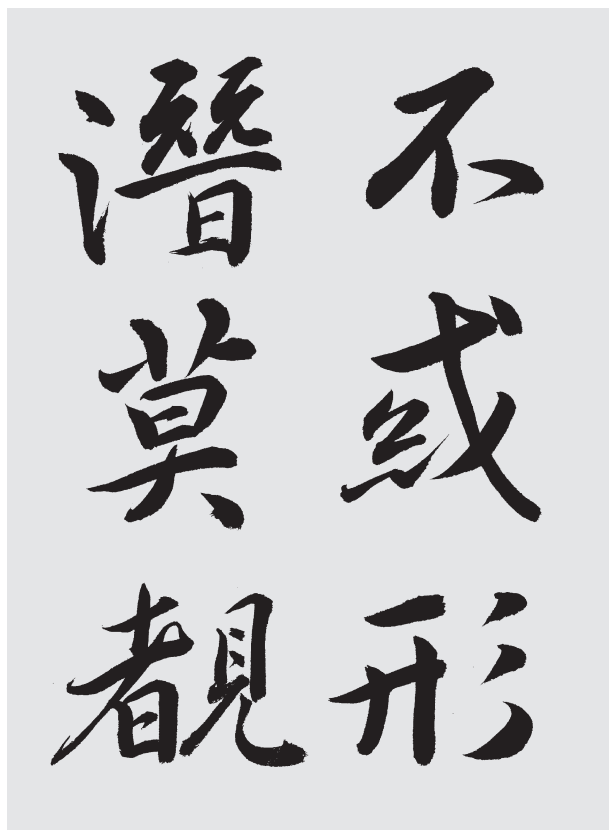 不或形
潛莫覩